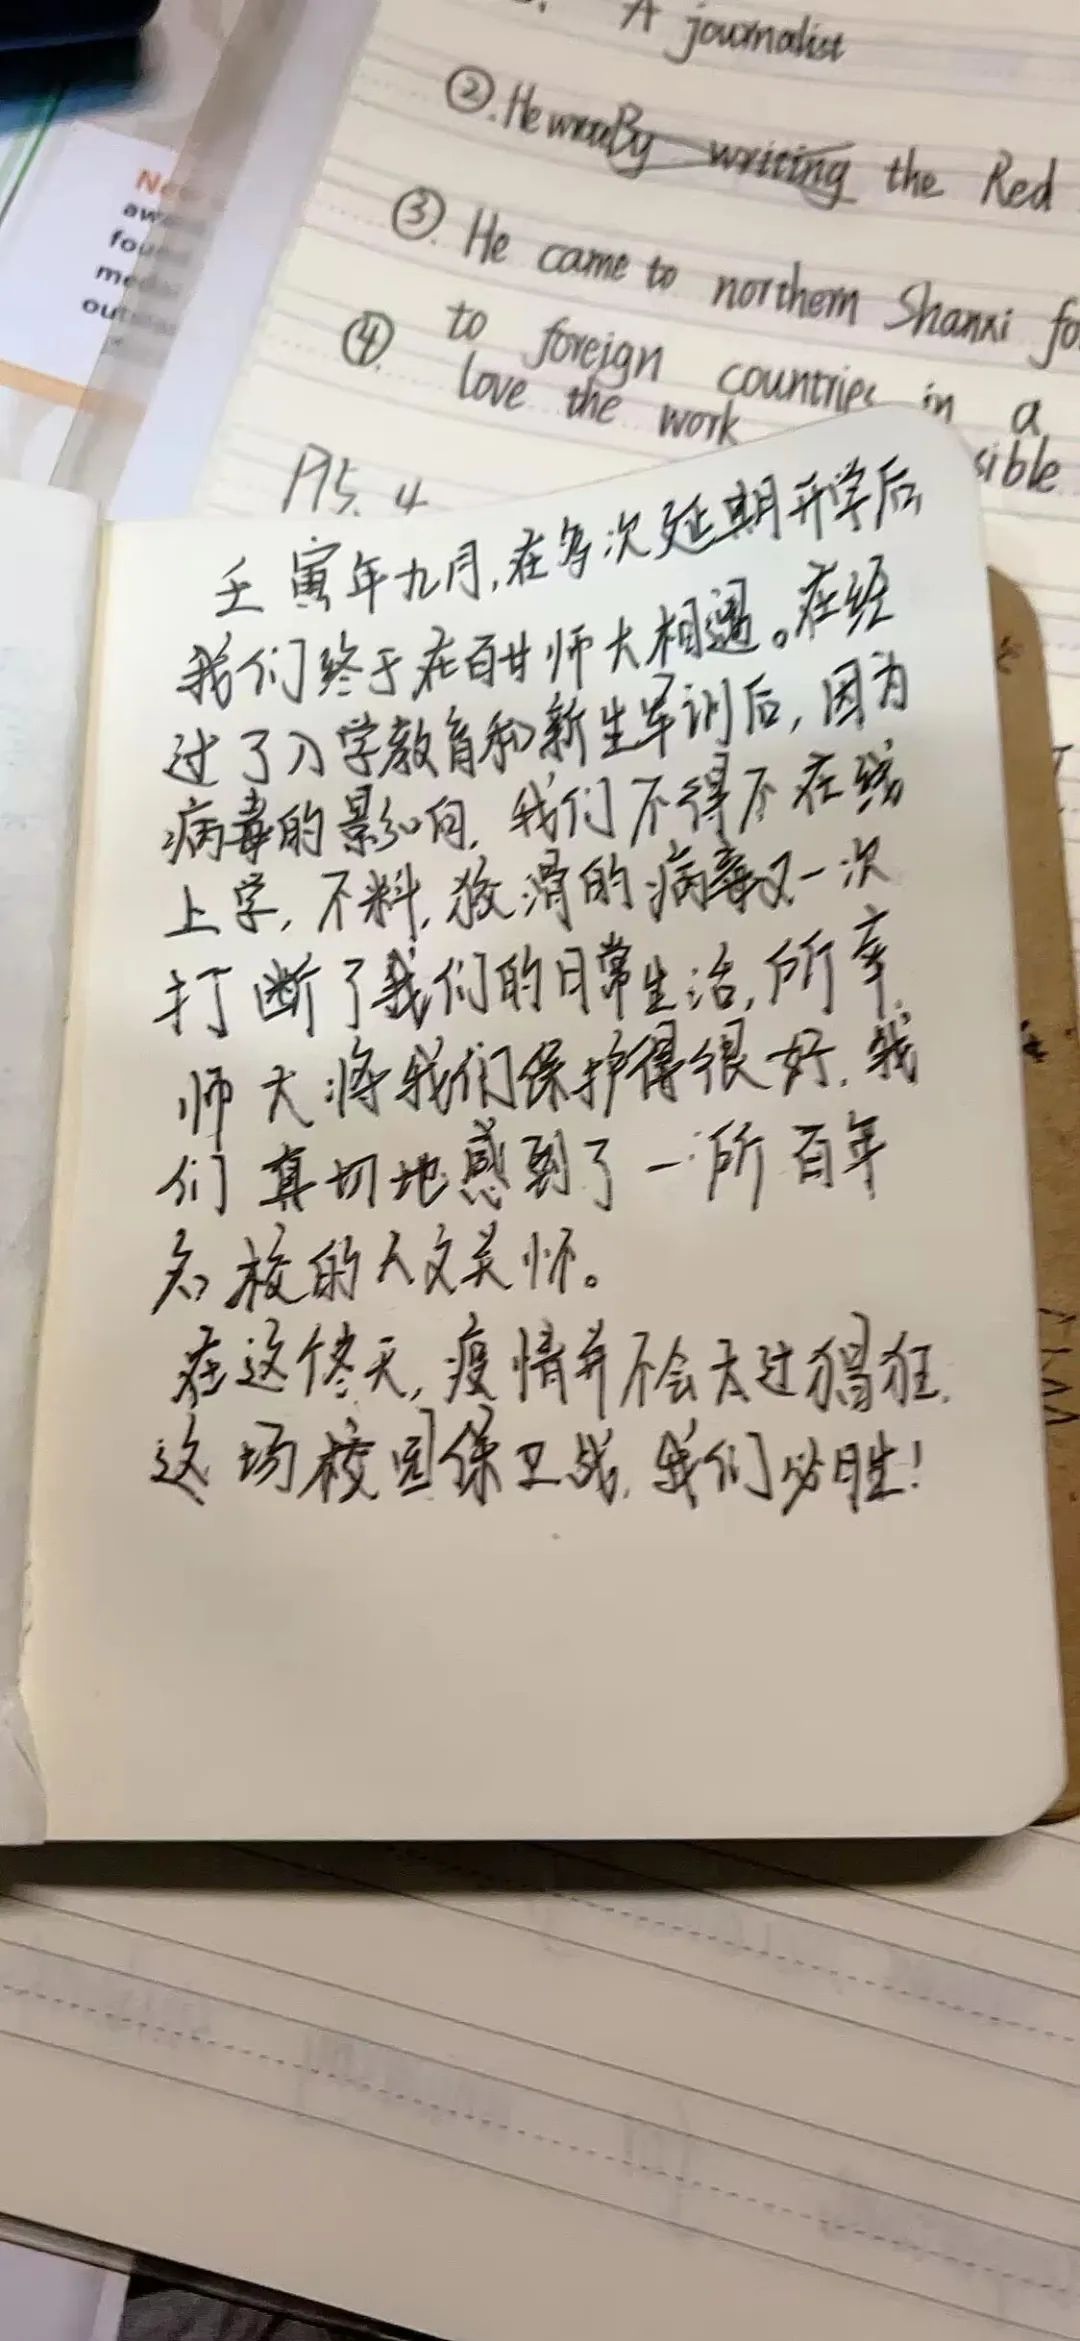 A journalist
②. He By writing the Red
③. He came to northern Shanxi fo
to foreign countries in a
④. love the work
sible
P15. 4
壬寅年九月,在多次延期开学后
我们终于在百廿师大相遇。在经
过了入学教育和新生军训后,因为
病毒的影响,我们不得不在线
上学,不料,狡滑的病毒又一次
打断了我们的日常生活,所幸,
师大将我们保护得很好,我
们真切地感到了一所百年
名校的人文关怀。
在这个冬天,疫情并不会太过猖狂,
这场校园保卫战,我们必胜!